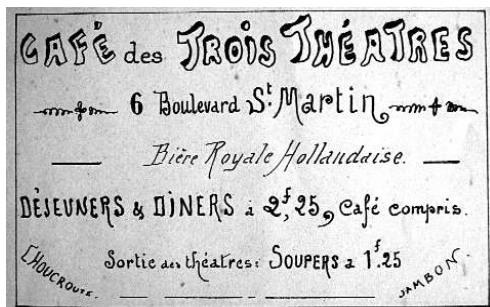 CAFÉ des TROIS THÉATRES
6 Boulevard St. Martin
Bière Royale Hollandaise.
DÉJEUNERS & DINERS à 2f,25, Café compris.
Sortie des théatres: SOUPERS à 1f.25
CHOUCROUTE.
JAMBON.